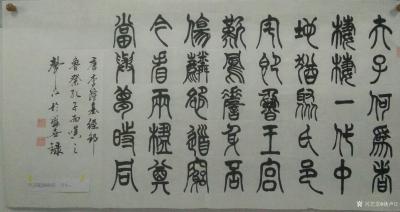 夫子何為者
棲棲一代中
地猶鄹氏邑
宅即魯王宮
歎鳳嗟身否
傷麟怨道窮
今看兩楹奠
當與夢時同
唐李隆基經鄒
魯祭孔子而嘆之
於安錄